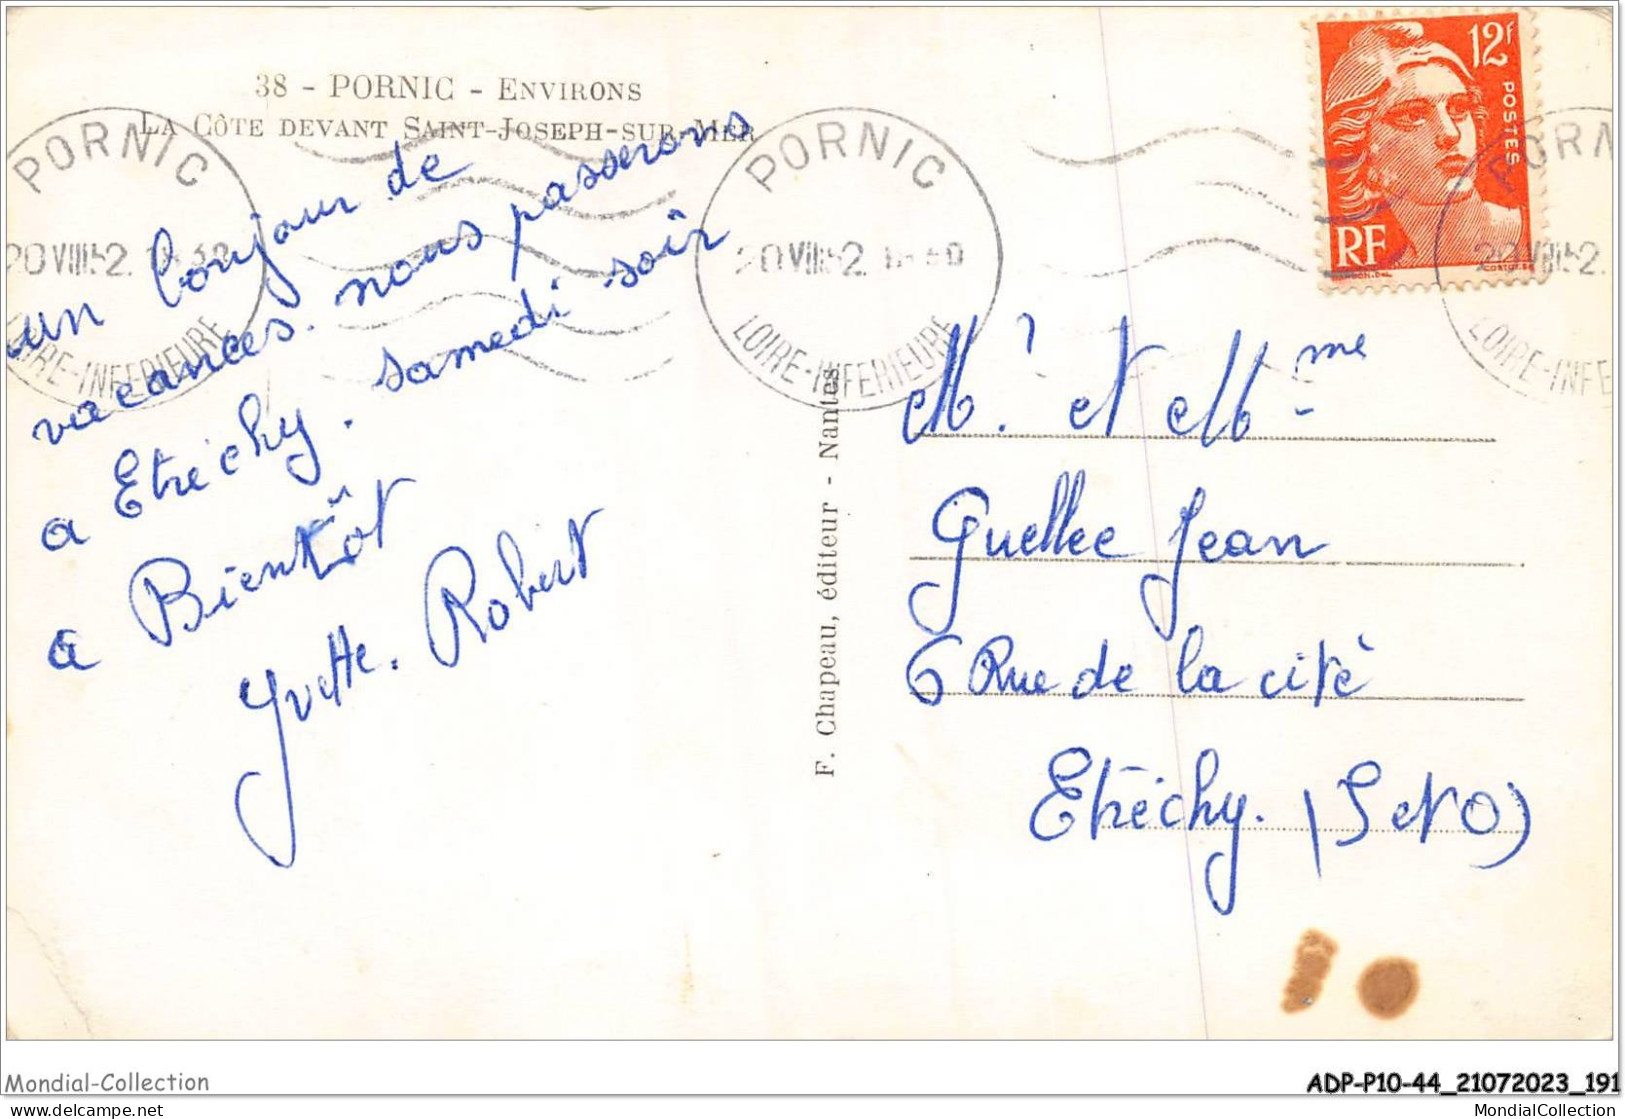 38 - PORNIC - ENVIRONS
LA CÔTE DEVANT SAINT-JOSEPH-SUR-MER
un bonjour de
vacances. nous passerons
a Etréchy. samedi soir
a Bientôt
Yvette. Robert
F. Chapeau, éditeur - Nantes
PORNIC
20 VIII 52
LOIRE-INFERIEURE
PORNIC
20 VIII 52
LOIRE-INFERIEURE
12f
POSTES
RF
PORN
LOIRE-INFE
Mr. et Mme
Guellec Jean
6 Rue de la cité
Etréchy. (S et O)
Mondial-Collection
ADP-P10-44_21072023_191
Mondial-Collection
MondialCollection